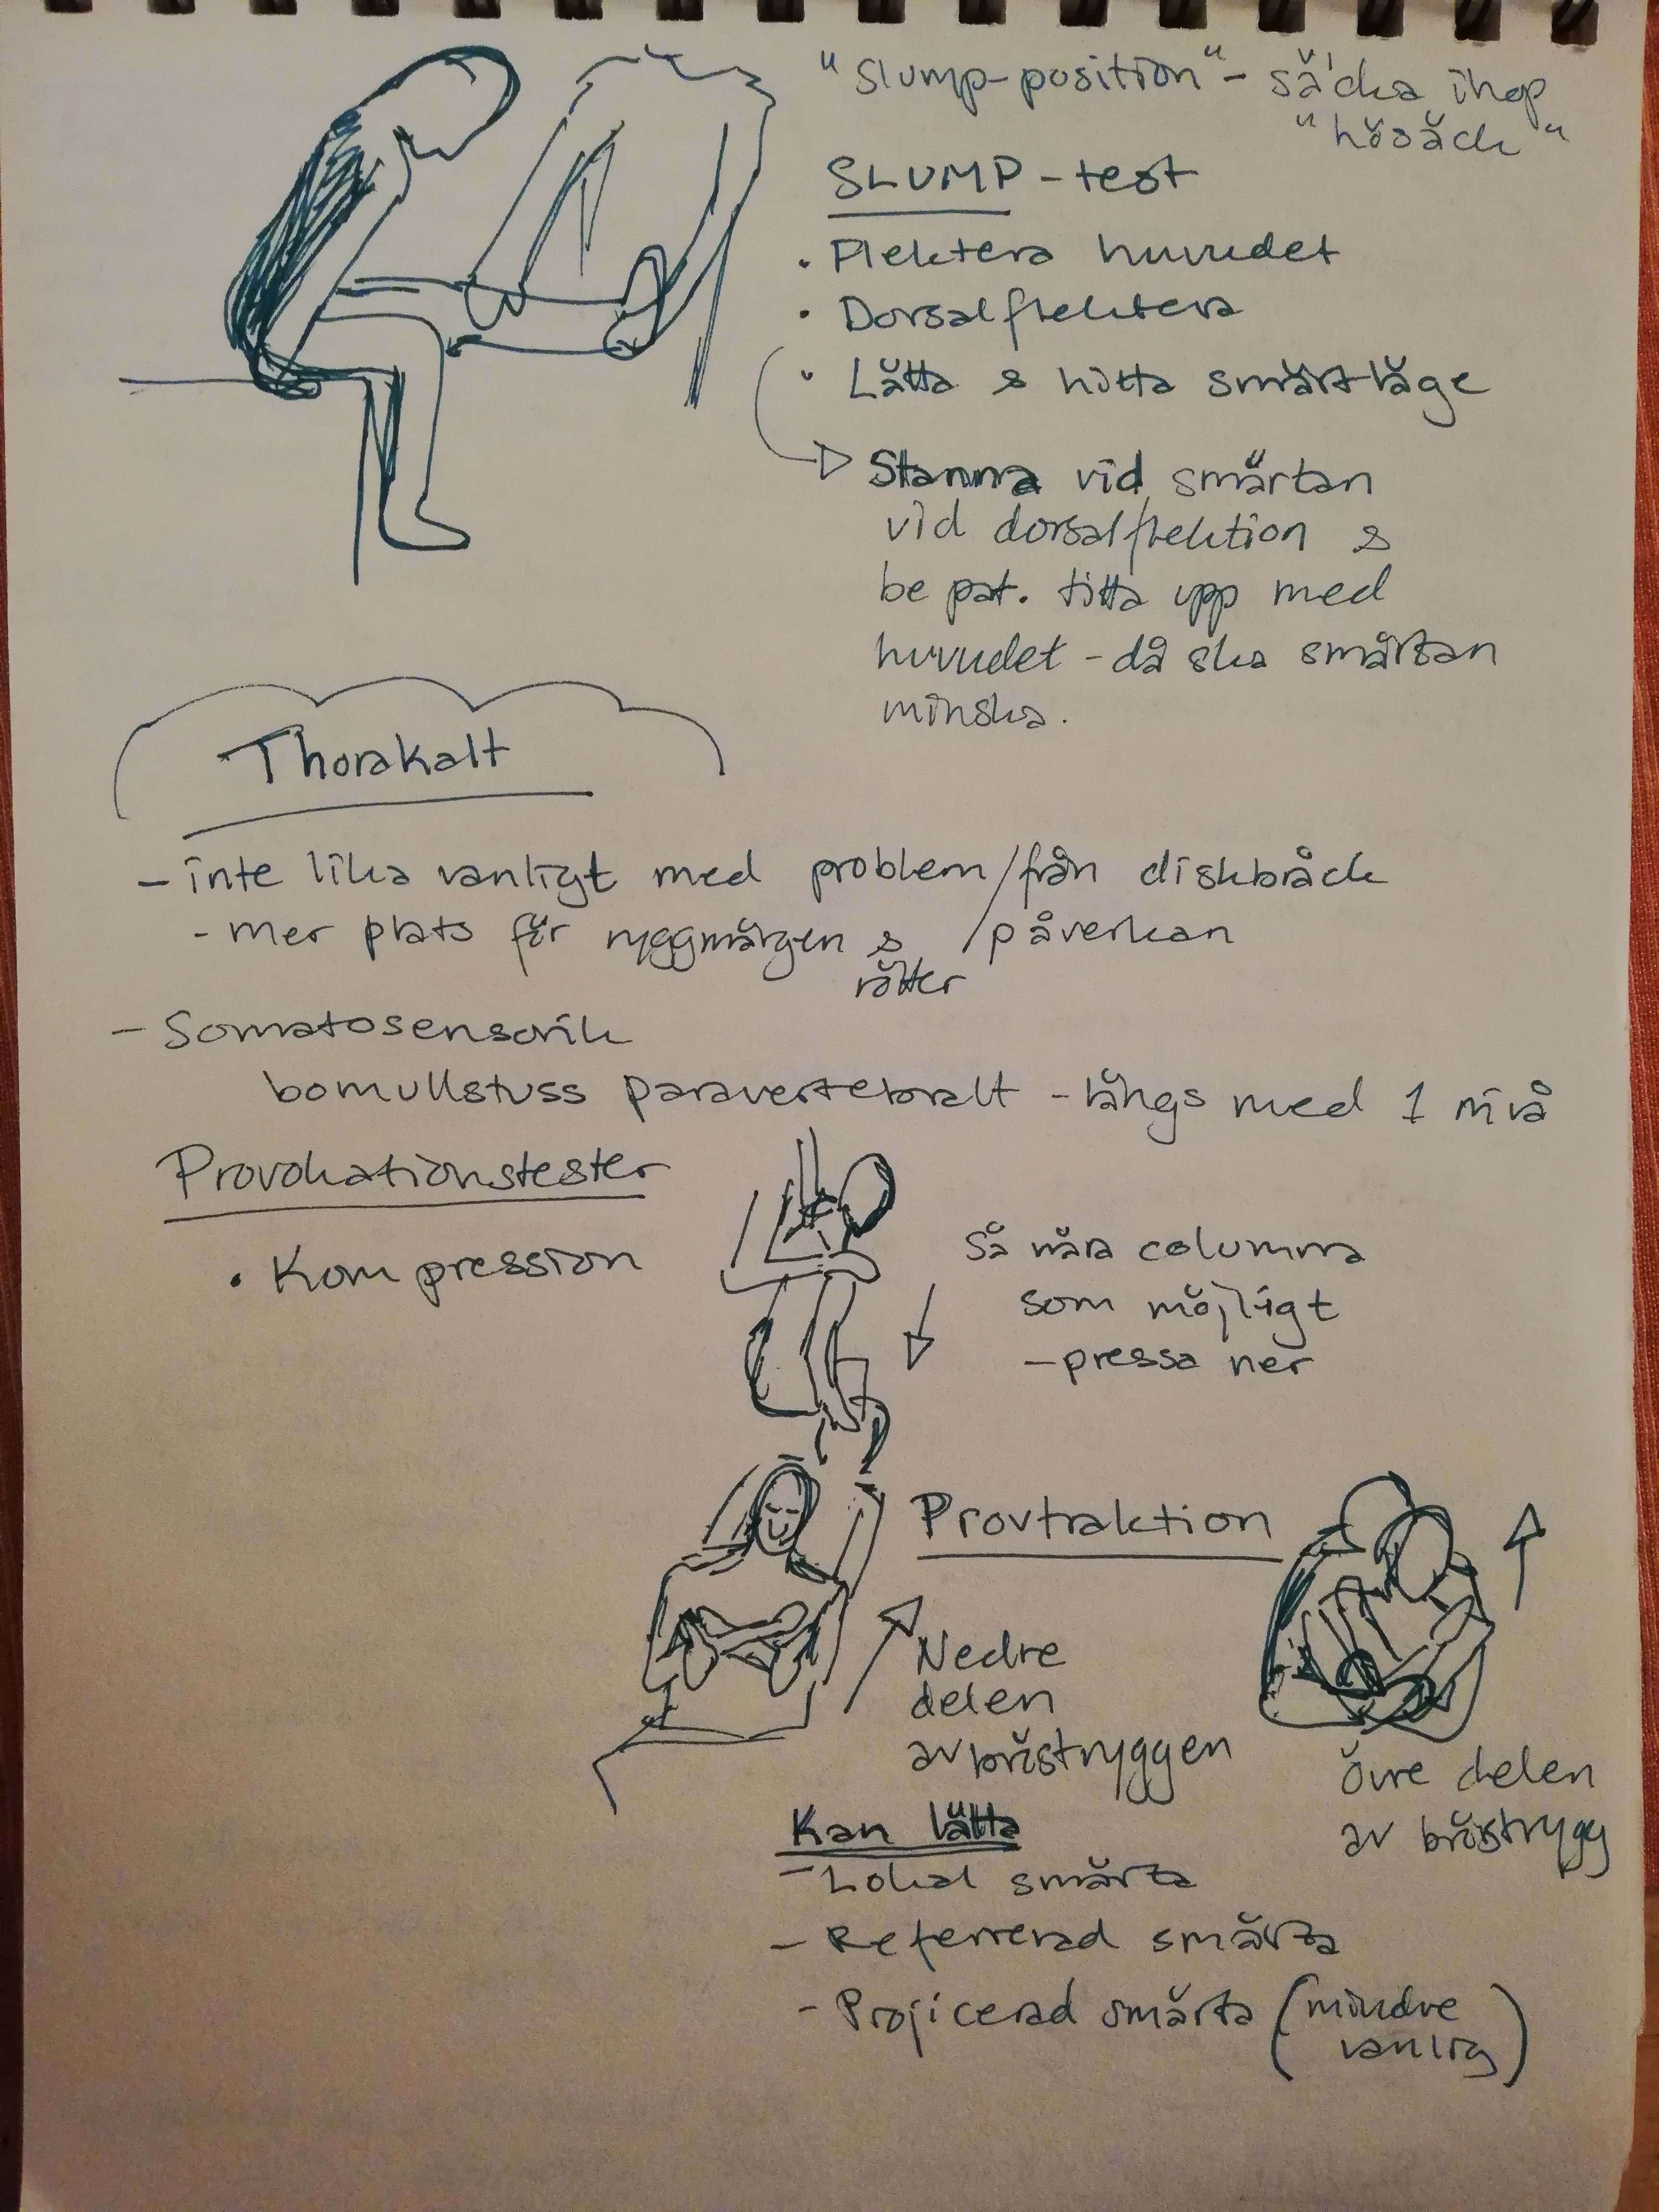 "Slump-position" - säcka ihop
"hösäck"
SLUMP - test
• Flektera huvudet
• Dorsalflektera
• Lätta & hitta smärtläge
Stanna vid smärtan
vid dorsalflektion &
be pat. titta upp med
huvudet - då ska smärtan
minska.
Thorakalt
- inte lika vanligt med problem/från diskbråck
- mer plats för ryggmärgen & /påverkan
rötter
- Somatosensorik
bomullstuss paravertebralt - längs med 1 nivå
Provokationstester
• Kompression
Så nära columna
som möjligt
- pressa ner
Provtraktion
Nedre
delen
av bröstryggen
övre delen
av bröstrygg
Kan lätta
- Lokal smärta
- Referrerad smärta
- Projicerad smärta (mindre
vanlig)